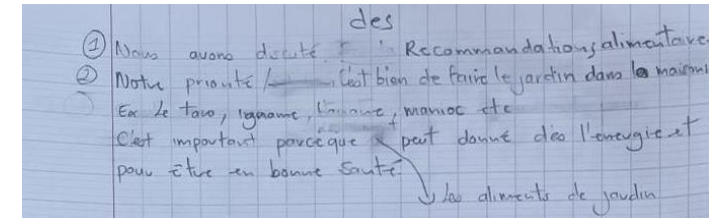 des
① Nous avons discuté Recommandations alimentaire
② Notre priorité C'est bien de faire le jardin dans la maison
Ex le taro, igname, banane, manioc etc
C'est important parceque peut donné des l'energie et
pour être en bonne santé
les aliments de jardin